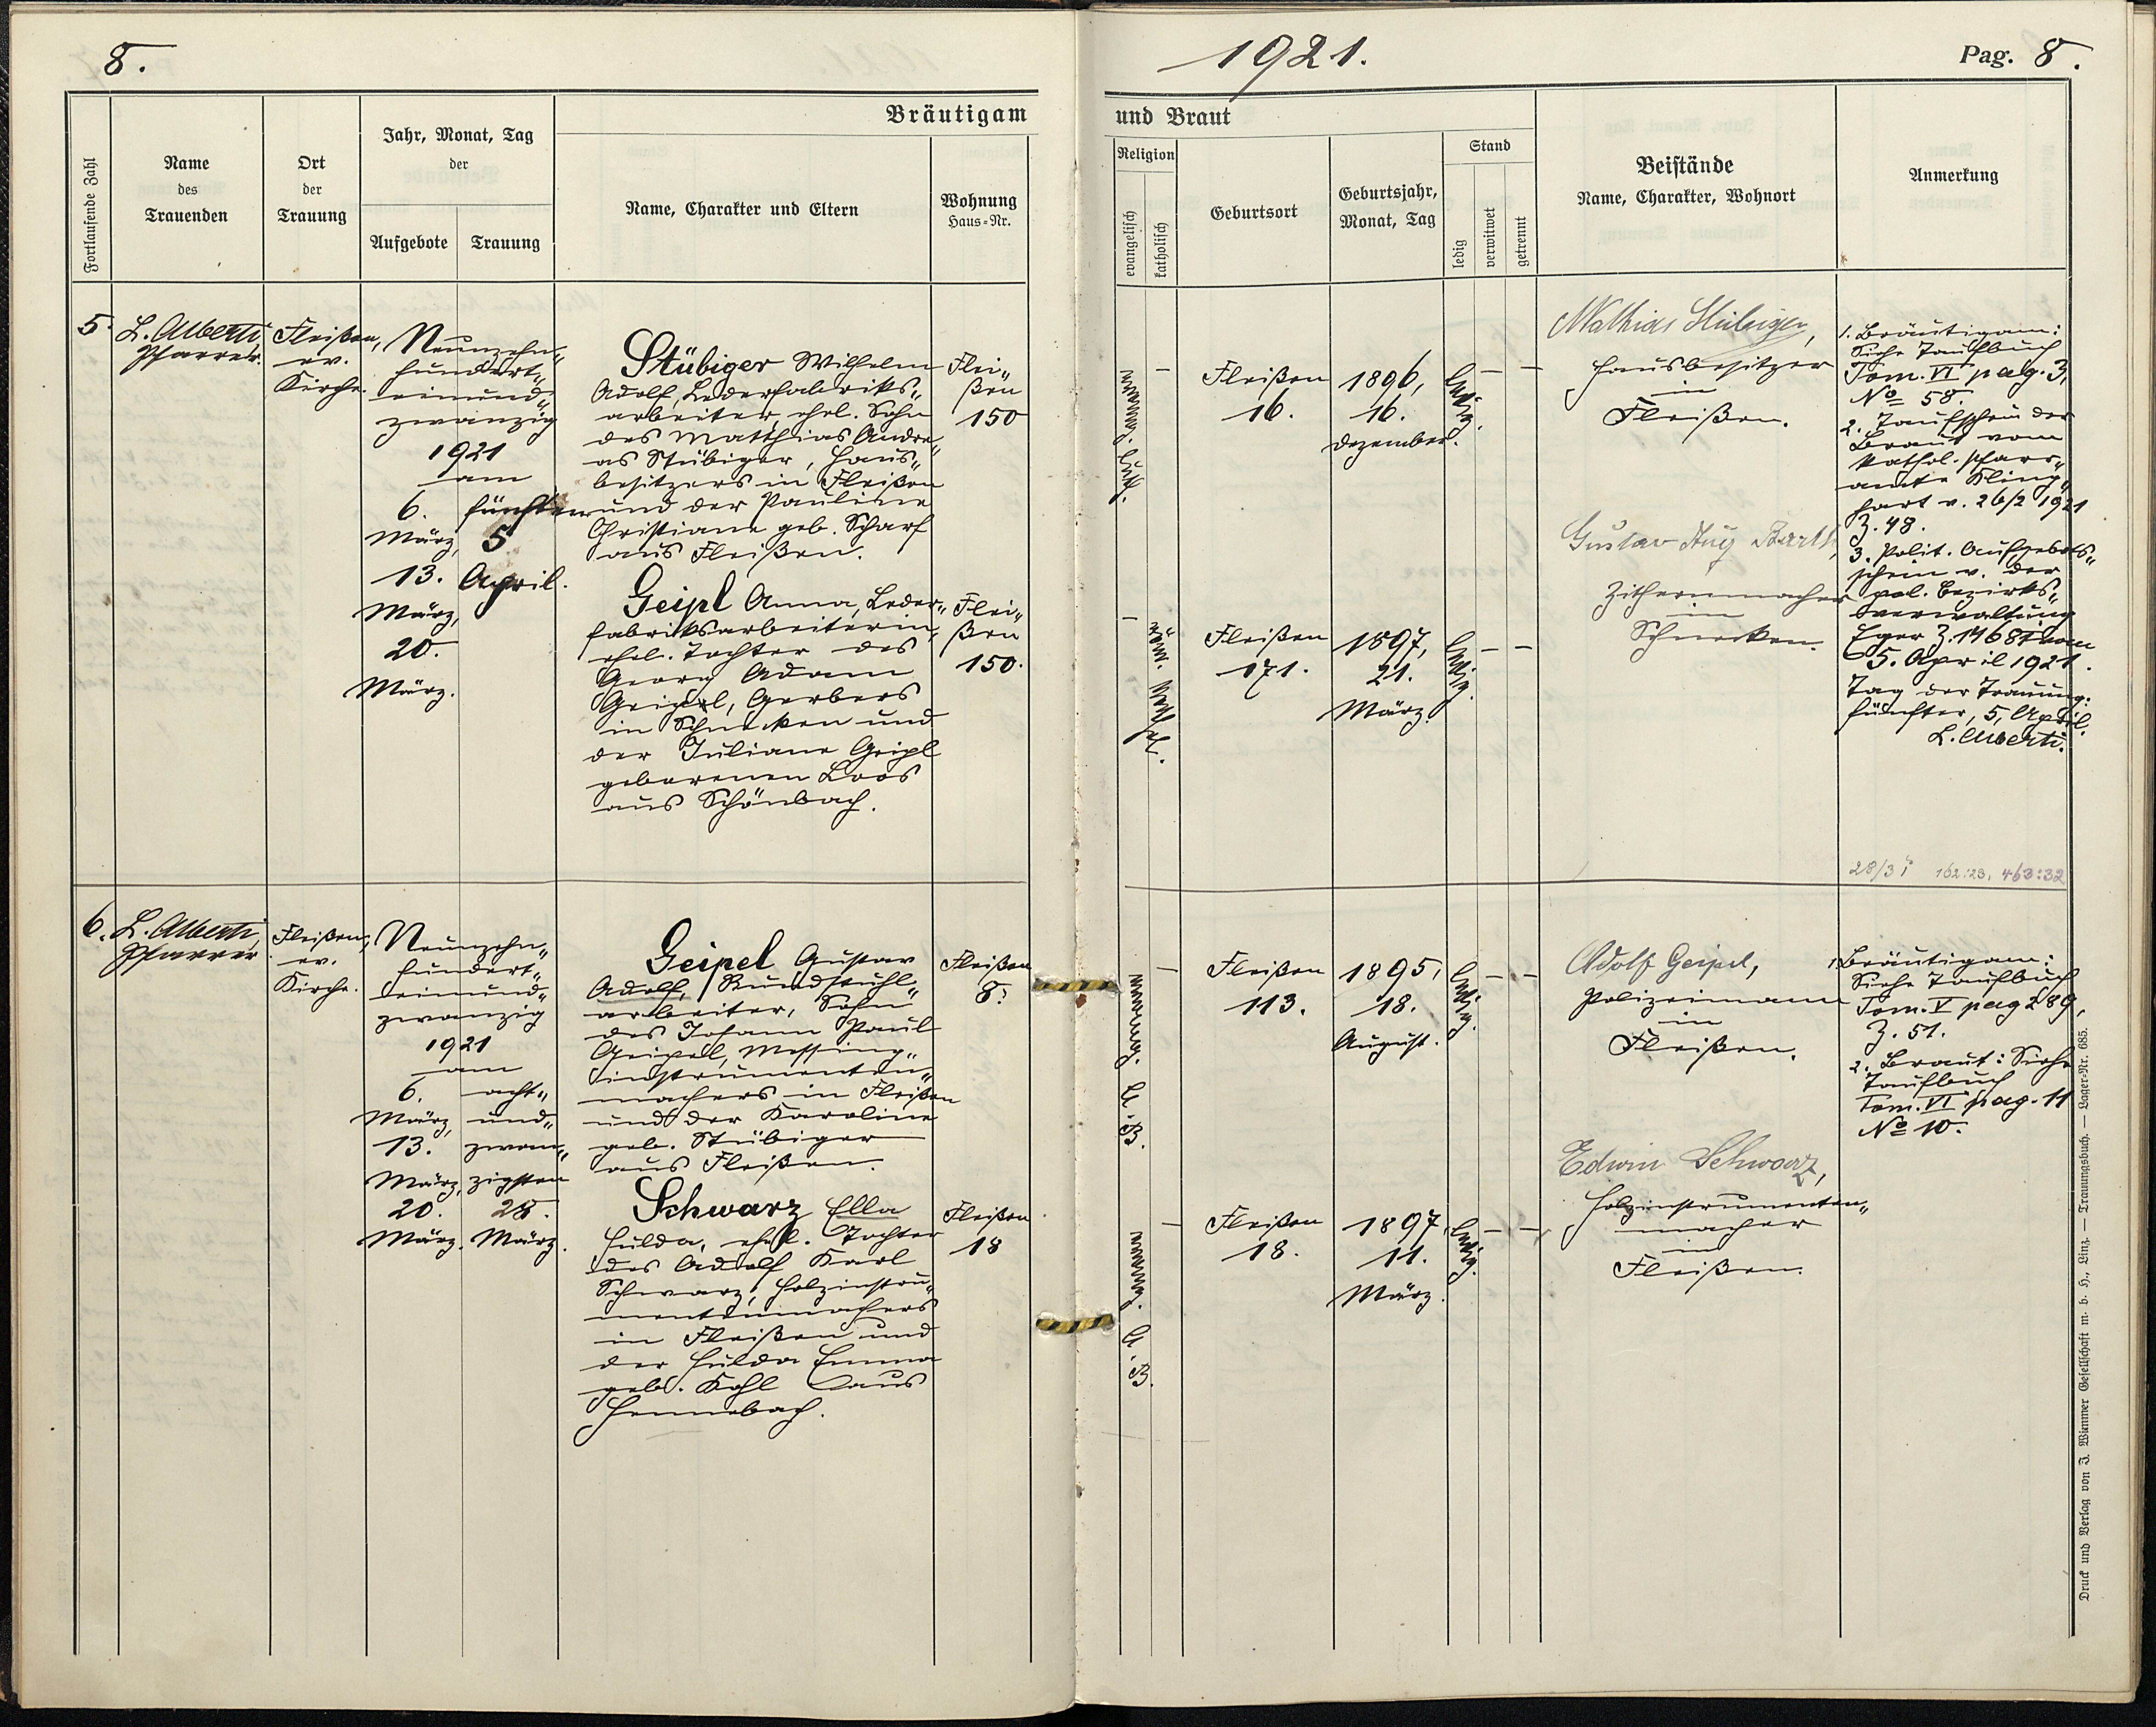 8.
1921.
Pag. 8.
Fortlaufende Zahl
Name
des
Trauenden
Ort
der
Trauung
Jahr, Monat, Tag
der
Aufgebote
Trauung
Bräutigam
Name, Charakter und Eltern
Wohnung
Haus=Nr.
und Braut
Religion
evangelisch
katholisch
Geburtsort
Geburtsjahr,
Monat, Tag
Stand
ledig
verwitwet
getrennt
Beistände
Name, Charakter, Wohnort
Anmerkung
5.
L. Alberti,
Pfarrer.
Fleißen,
ev.
Kirche.
Neunzehn„
hundert„
einund„
zwanzig
1921
am
6.
März,
13.
März,
20.
März.
fünften
5
April.
Stübiger Wilhelm
Adolf, Lederfabriks„
arbeiter, ehel. Sohn
des Matthias Andre„
as Stübiger, Haus„
besitzers in Fleißen
und der Pauline
Christiane geb. Scharf
aus Fleißen.
Flei„
ßen
150
Geipl Anna, Leder„
fabriksarbeiterin,
ehel. Tochter des
Georg Adam
Geipel, Gerbers
in Schnecken und
der Juliane Geipl
geborenen Loos
aus Schönbach.
Flei„
ßen
150.
evang. luth.
Fleißen
16.
1896,
16.
Dezember.
ledig.
– –
röm. kathol.
Fleißen
171.
1897,
21.
März.
ledig.
– –
Mathias Stübiger,
Hausbesitzer
in
Fleißen.
Gustav Aug Barth,
Zithernmacher
in
Schnecken.
1. Bräutigam:
Siehe Taufbuch
Tom. VI pag. 3,
No 58.
2. Taufschein der
Braut vom
kathol. Pfarr„
amte Kling„
hart v. 26/2 1921
Z. 48.
3. Polit. Aufgebots„
schein v. der
pol. Bezirks„
verwaltung
Eger Z. 14687 vom
5. April 1921.
Tag der Trauung:
fünfter, 5, April.
L. Alberti.
162:23, 463:32
6.
L. Alberti,
Pfarrer
Fleißen,
ev.
Kirche.
Neunzehn„
hundert„
einund„
zwanzig
1921
am
6.
März,
13.
März,
20.
März.
acht„
und„
zwan„
zigsten
28.
März.
Geipel Gustav
Adolf, Rundstuhl„
arbeiter, Sohn
des Johann Paul
Geipel, Messing„
instrumenten„
machers in Fleißen
und der Karoline
geb. Stübiger
aus Fleißen.
Fleißen
8.
Schwarz Ella
Hulda, ehel. Tochter
des Adolf Karl
Schwarz, Holzinstru„
mentenmachers
in Fleißen und
der Hulda Emma
geb. Kohl aus
Hennebach.
Fleißen
18
evang. A. B.
Fleißen
113.
1895,
18.
August.
ledig.
– –
evang. A. B.
Fleißen
18.
1897,
11.
März.
ledig.
– –
Adolf Geipel,
Polizeimann
in
Fleißen.
Edwin Schwarz,
Holzinstrumenten„
macher
in
Fleißen.
1. Bräutigam:
Siehe Taufbuch
Tom. V pag 289,
Z. 51.
2. Braut: Siehe
Taufbuch
Tom. VI pag. 11
No 10.
Druck und Verlag von J. Wimmer Gesellschaft m. b. H., Linz. — Trauungsbuch. — Lager=Nr. 685.